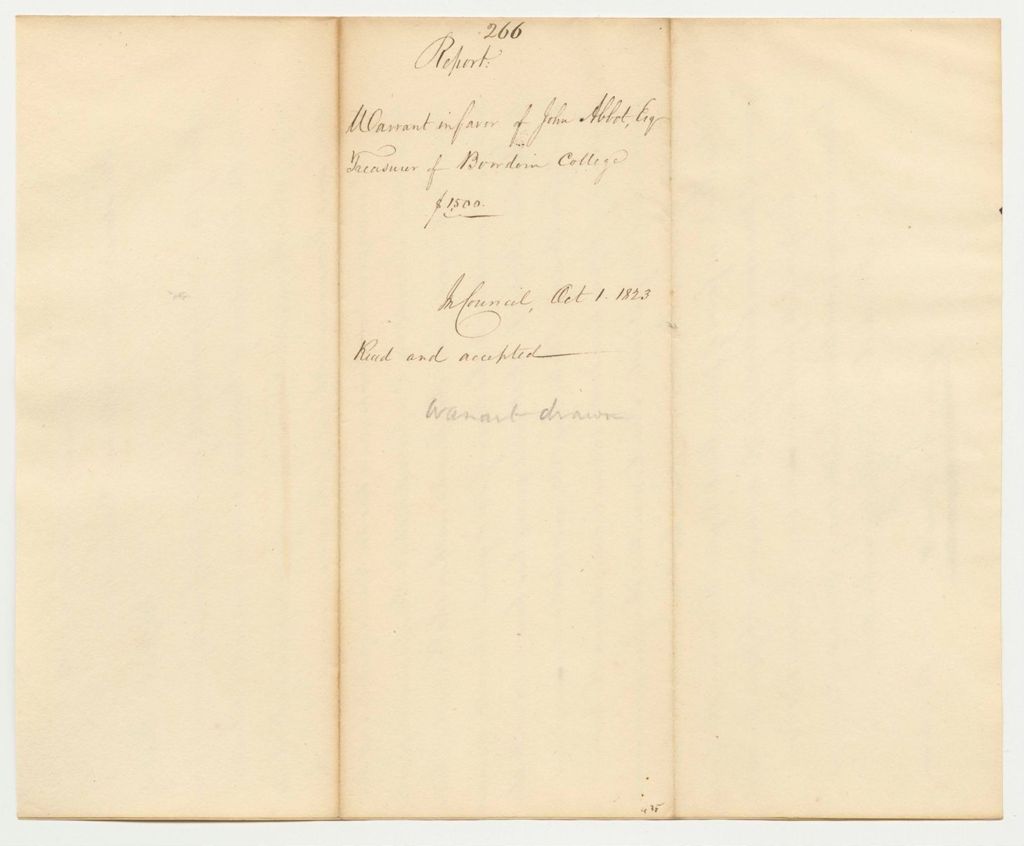 266
Report:
Warrant in favor of John Abbot, Esq
Treasurer of Bowdoin College
$1500.
In Council, Oct 1. 1823
Read and accepted
Warrant drawn